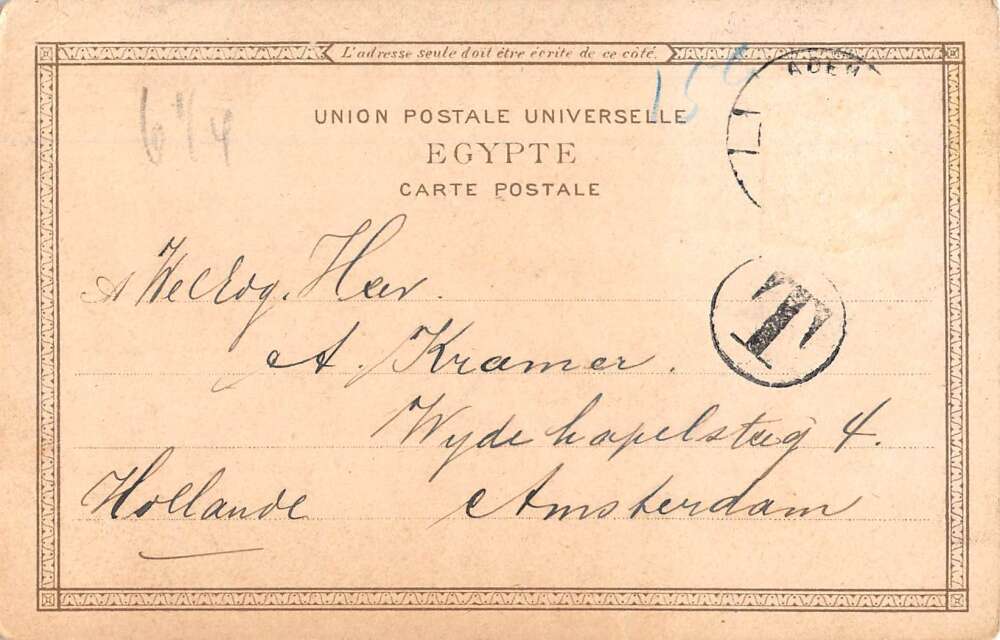 L'adresse seule doit être écrite de ce côté.
15 c
ADEN
6 1/4
UNION POSTALE UNIVERSELLE
EGYPTE
CARTE POSTALE
T
WelEdg. Heer.
A. Kramer.
Wyde kapelsteeg 4.
Hollande Amsterdam